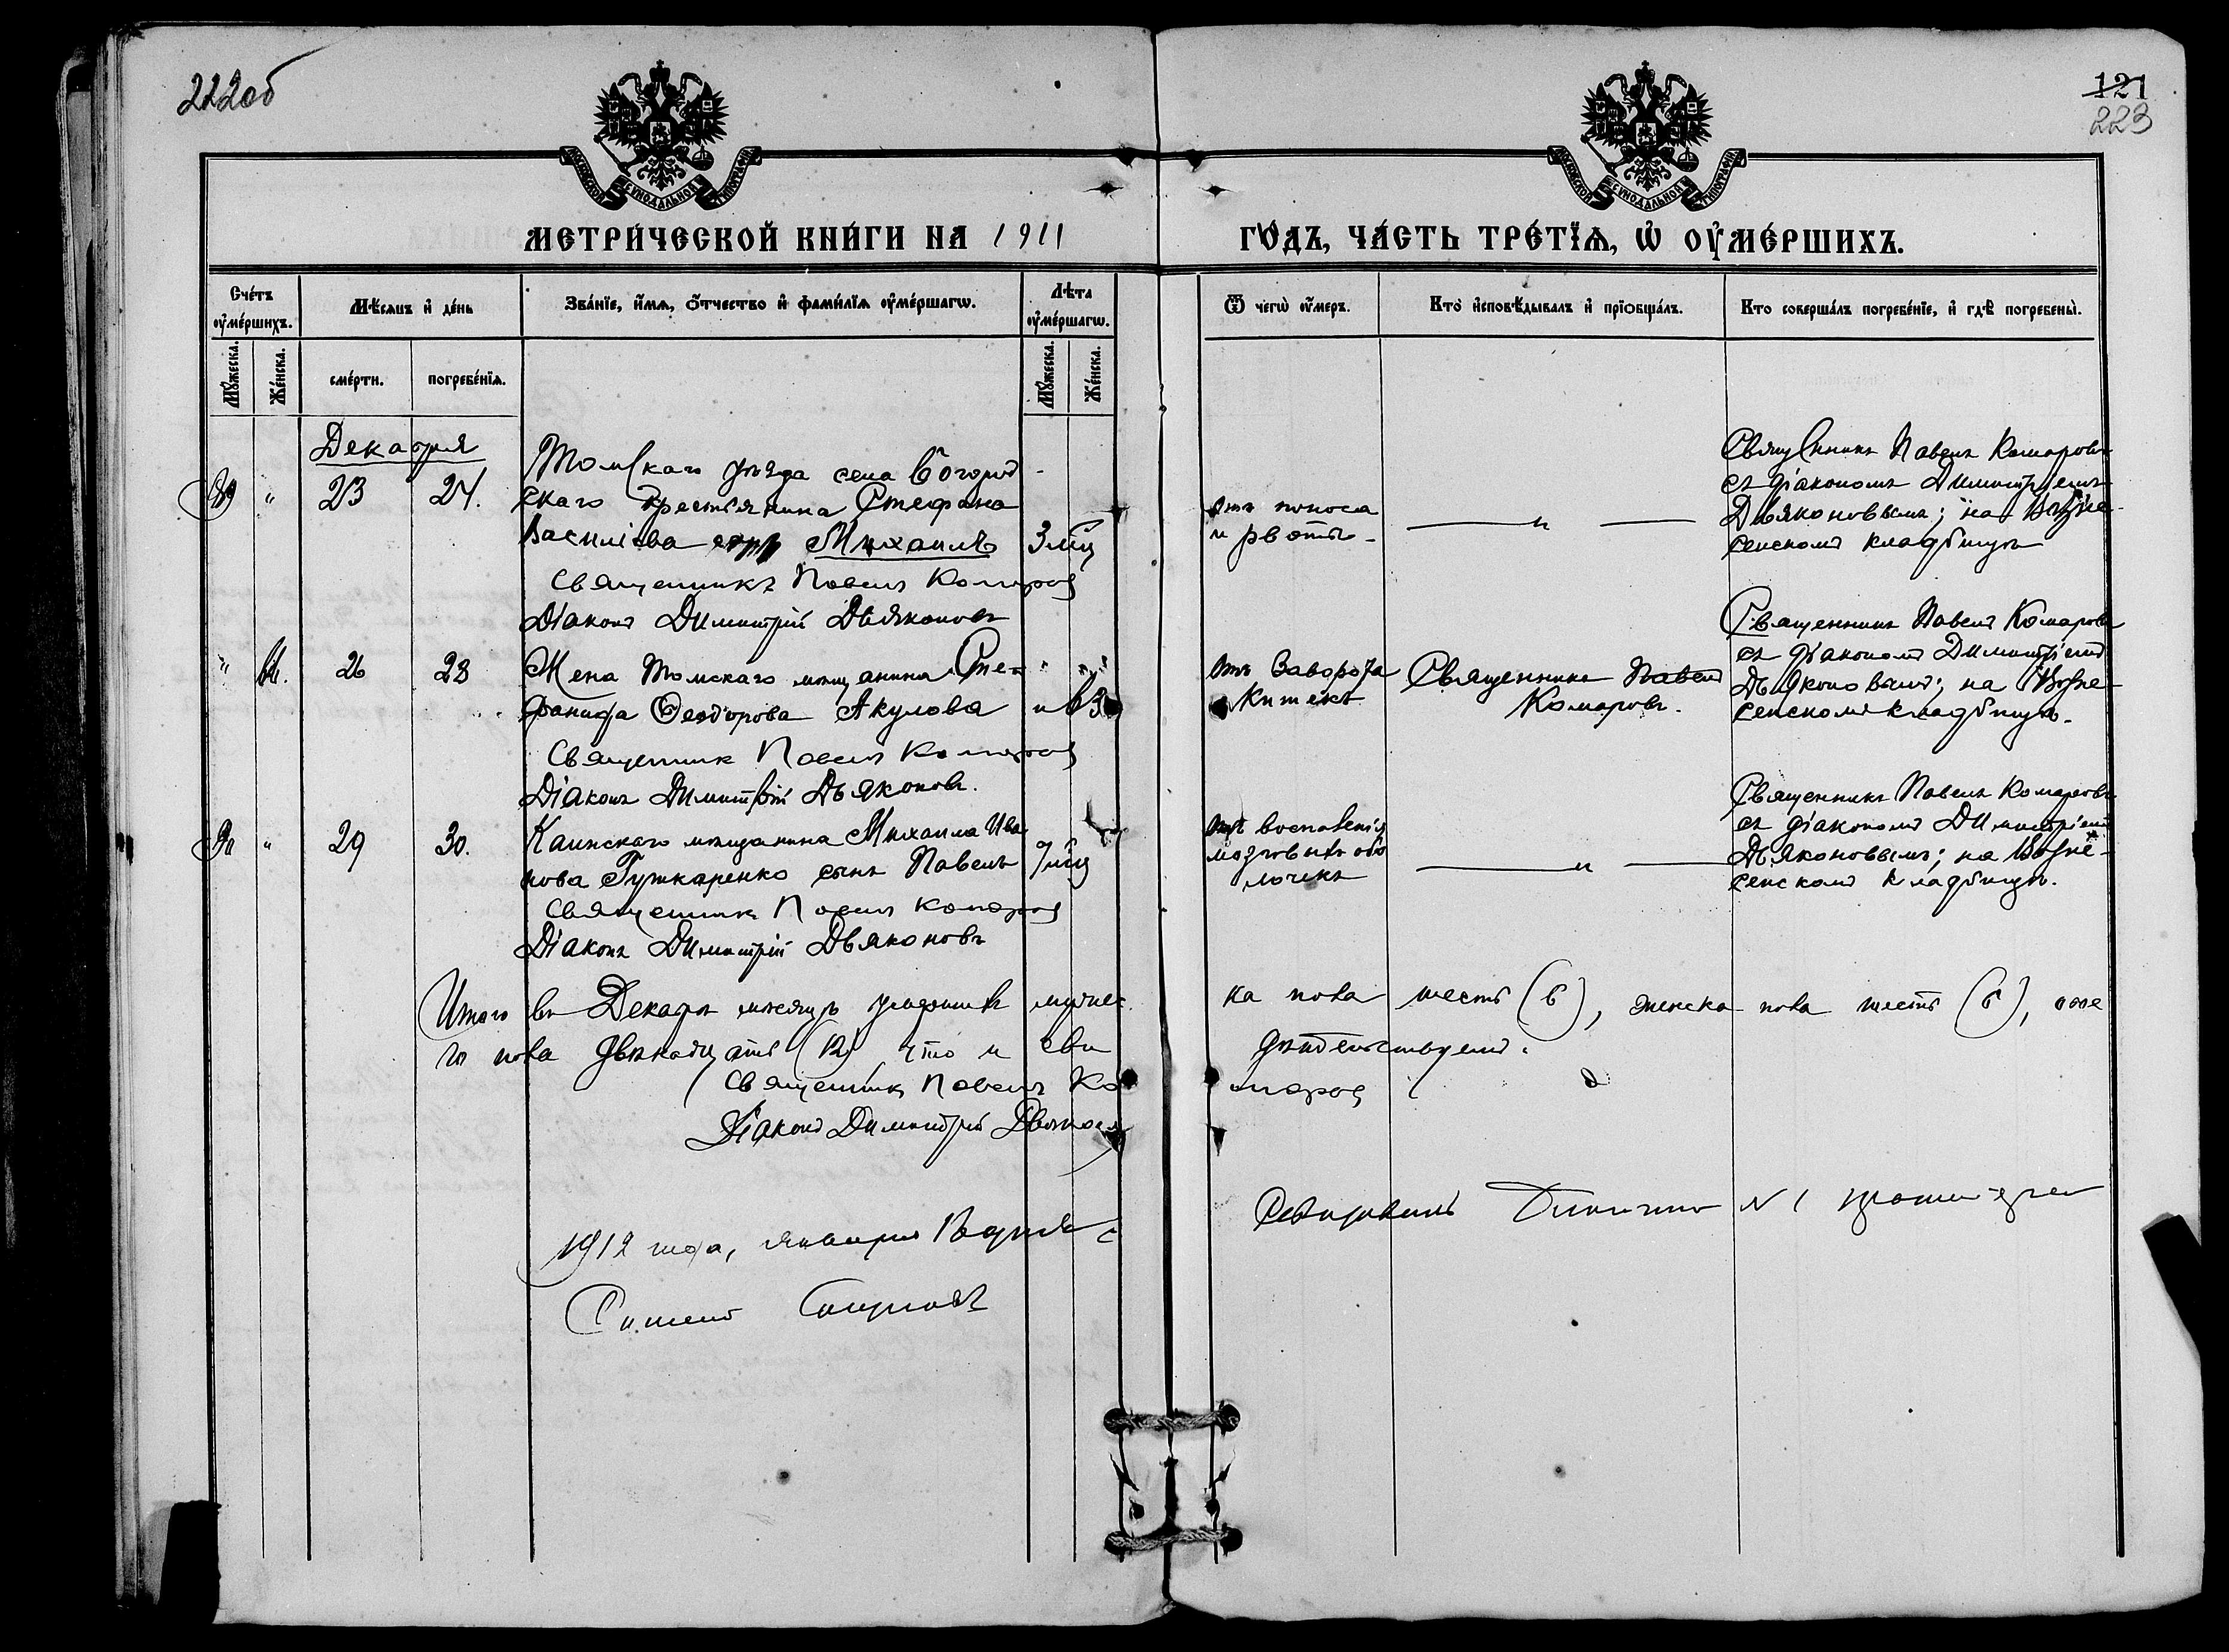 222об
121
223
МОСКОВСКОЙ СѴНОДАЛЬНОЙ ТИПОГРАФІИ
МОСКОВСКОЙ СѴНОДАЛЬНОЙ ТИПОГРАФІИ
МЕТРИ́ЧЕСКОЙ КНИ́ГИ НА 1911
ГО́ДЪ, ЧА́СТЬ ТРЕ́ТЇѦ, Ѡ҆ ОУ҆МЕ́РШИХЪ.
Сче́тъ оу҆ме́ршихъ.
Мꙋ́жеска.
Же́нска.
Мѣ́сѧцъ и҆ де́нь
сме́рти.
погребе́нїѧ.
Зва́нїе, и҆́мѧ, ѻ҆́тчество и҆ фами́лїѧ оу҆ме́ршагѡ.
Лѣ́та оу҆ме́ршагѡ.
Мꙋ́жеска.
Же́нска.
Ѿ чегѡ̀ оу҆́меръ.
Кто̀ и҆сповѣ́дывалъ и҆ прїѻбща́лъ.
Кто̀ соверша́лъ погребе́нїе, и҆ гдѣ̀ погребены̀.
Декабря
89 " 23 24.
Томскаго уѣзда села Богород
скаго крестьянина Стефана
Василіева Михаилъ
3 мѣц
Священникъ Павелъ Комаров
Діаконъ Димитрій Дьяконовъ
Отъ поноса
и рвоты
— " —
Священникъ Павелъ Комаровъ
съ діакономъ Димитріемъ
Дьяконовымъ; на Возне-
сенскомъ кладбищѣ
" 26 28
Жена Томскаго мѣщанина Сте-
фанида Ѳеодорова Акулова
" 63
Священник Павелъ Комаров
Діаконъ Димитрій Дьяконовъ.
Отъ Заворота
Кишекъ
Священникъ Павелъ
Комаровъ.
Священникъ Павелъ Комаровъ
съ діакономъ Димитріемъ
Дьяконовымъ; на Возне-
сенскомъ кладбищѣ.
90 " 29 30.
Каинскаго мѣщанина Михаила Ива-
нова Гужкаренко сынъ Павелъ
7 мѣц
Священникъ Павелъ Комаров
Діаконъ Димитрій Дьяконовъ
Отъ воспаленія
мозговыхъ обо
лочекъ
— " —
Священникъ Павелъ Комаровъ
съ діакономъ Димитріемъ
Дьяконовымъ; на Возне-
сенскомъ кладбищѣ.
Итого въ Декабрѣ мѣсяцѣ умершихъ мужес
ка пола шесть (6), женска пола шесть (6), обое
го пола двѣнадцать (12) что и сви
дѣтельствуемъ.
Священникъ Павелъ Ко
маров
Діаконъ Димитрій Дьяконовъ
1912 года, января
Ревизовалъ Благочин N 1 протоіерей
Симеон